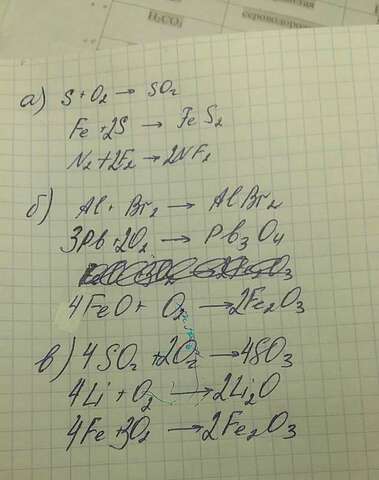 H₂CO₃
а) S + O₂ → SO₂
Fe + 2S → FeS₂
N₂ + 2F₂ → 2NF₂
б) Al + Br₂ → AlBr₂
3Pb + 2O₂ → Pb₃O₄
4FeO + O₂ → 2Fe₂O₃
в) 4SO₂ + 2O₂ → 4SO₃
4Li + O₂ → 2Li₂O
4Fe + 3O₂ → 2Fe₂O₃